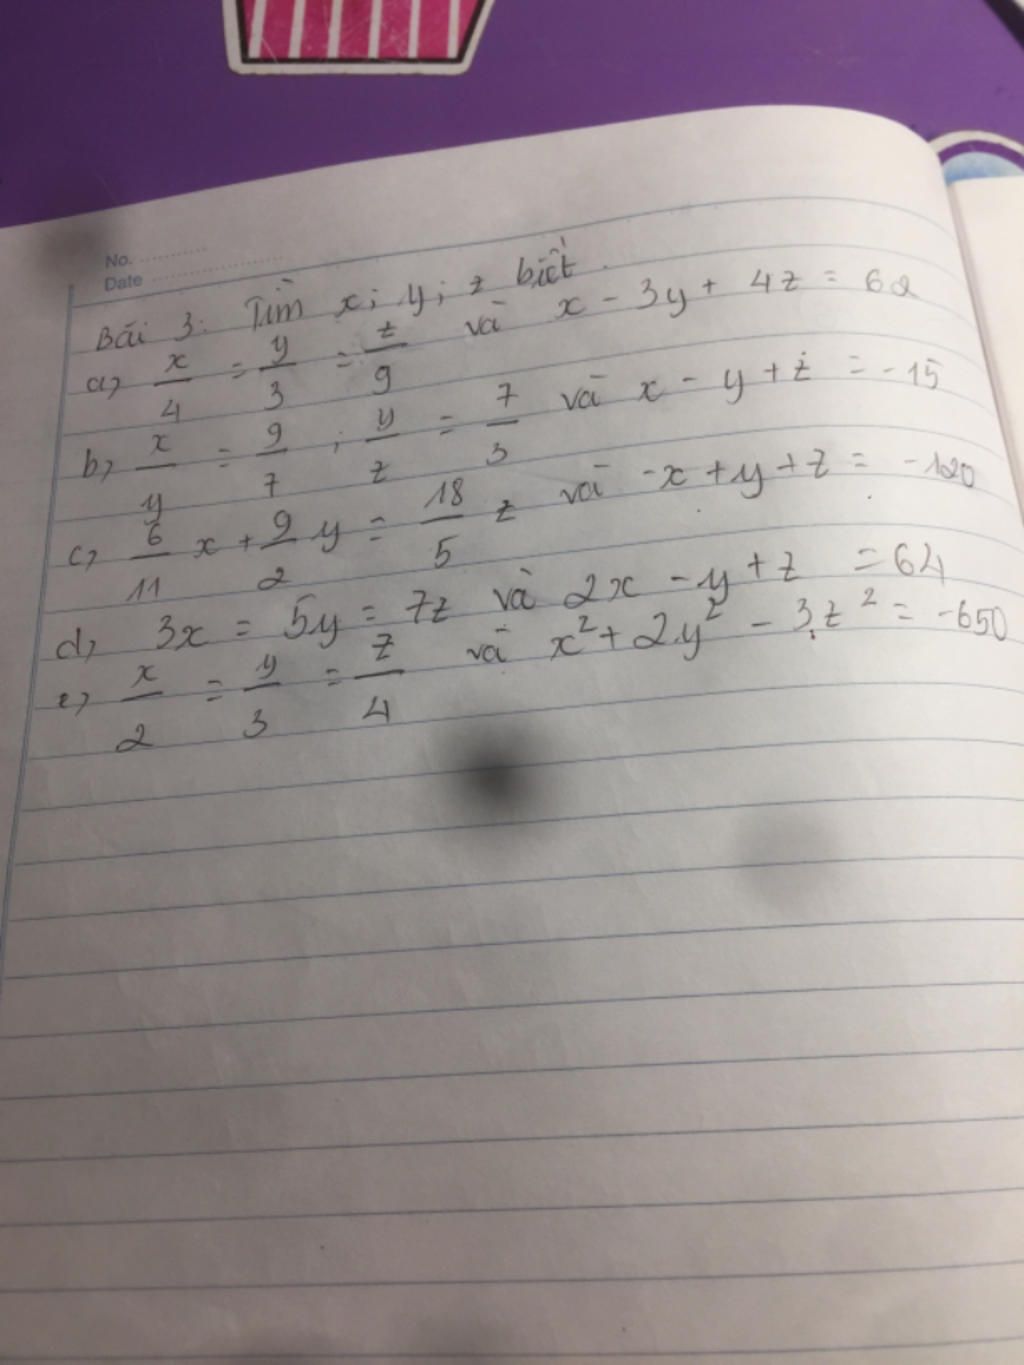 No. ............
Date ......................
Bài 3: Tìm x; y; z biết
a) x/4 = y/3 = z/9 và x - 3y + 4z = 62
b) x/y = 9/7 ; y/z = 7/3 và x - y + z = -15
c) 6/11 x + 9/2 y = 18/5 z và -x + y + z = -120
d) 3x = 5y = 7z và 2x - y + z = 64
e) x/2 = y/3 = z/4 và x² + 2y² - 3z² = -650